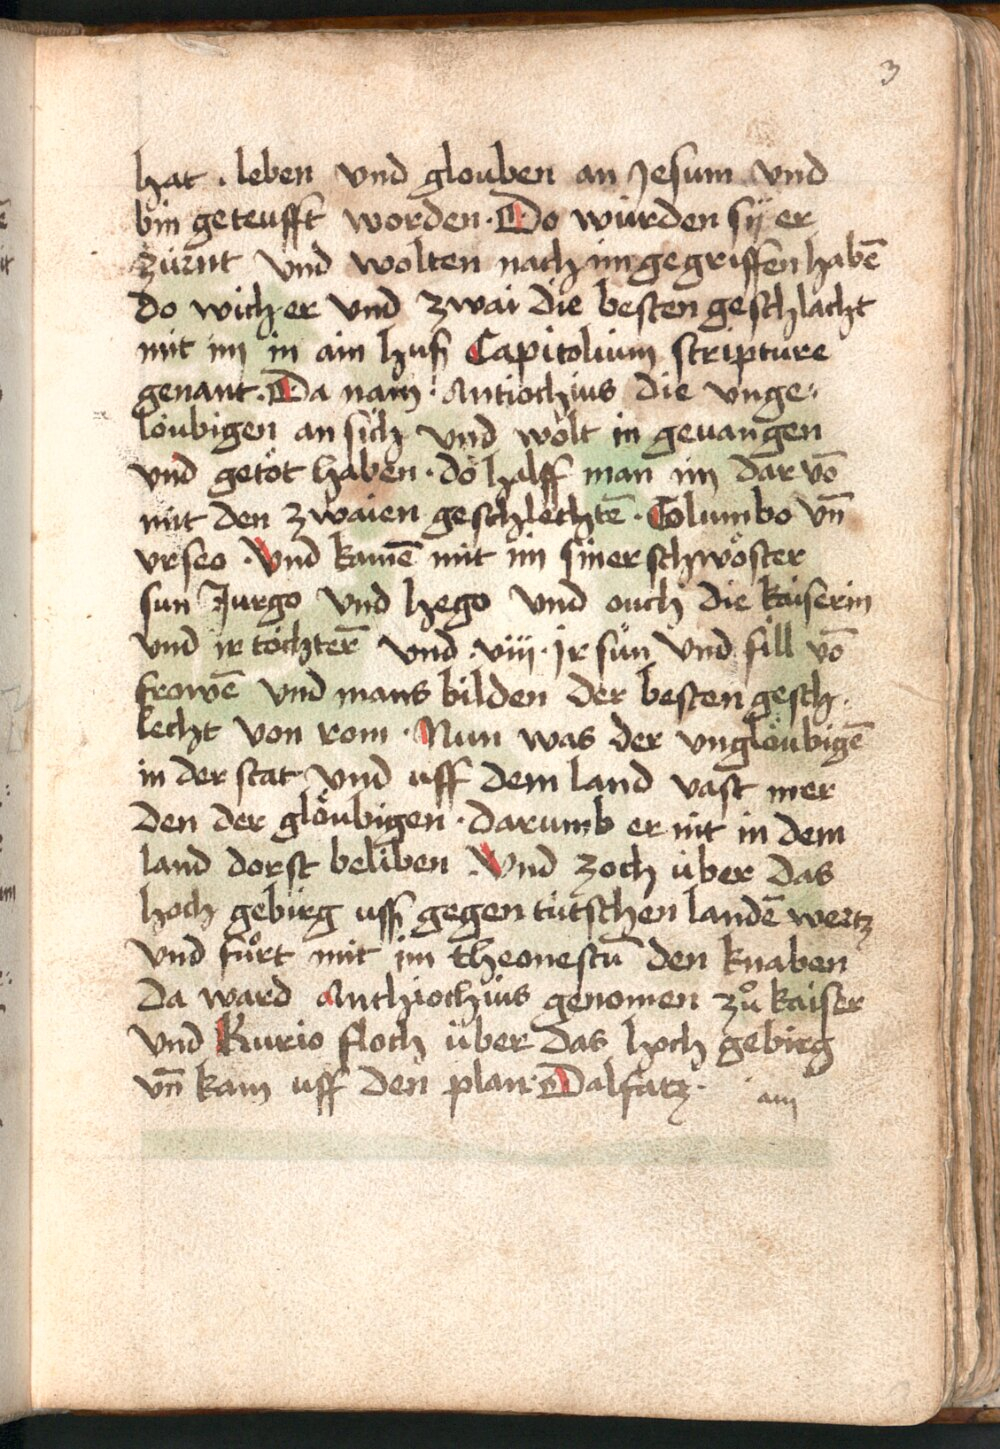 3
hat . leben vnd glouben an Jesum vnd
bin geteufft worden · Do würden sÿ er
zürnt vnd wolten nach im gegriffen habē
do wich er vnd zwai die besten geschlächt
mit im in ain huß Capitolium scripture
genant · Da nam · Antiochius die vnge⸗
löubigen an sich vnd wolt in geuangen
vnd getöt haben · do halff man im dar vō
mit den zwaien geschlechtē · Columbo vn̄
vrseo · Vnd kamē mit im siner schwöster
sun Jurgo vnd hego vnd ouch die kaiserin
vnd ir töchterē vnd · viij · Jr sün vnd fill vō
frowē vnd mans bilden der besten gesch⸗
lecht von rom · Nun was der vnglöubigē
in der stat vnd uff dem land vast mer
den der glöubigen · darumb er nit in dem
land dorst beliben · Vnd zoch über das
hoch gebirg uff gegen tütschen landē wertz
vnd fůrt mit im theonestū den knaben
Da ward Anthiochius genomen zů kaiser
vnd Kurio floch über das hoch gebirg
vn̄ kam uff den plan · Dalfatz ·
ain